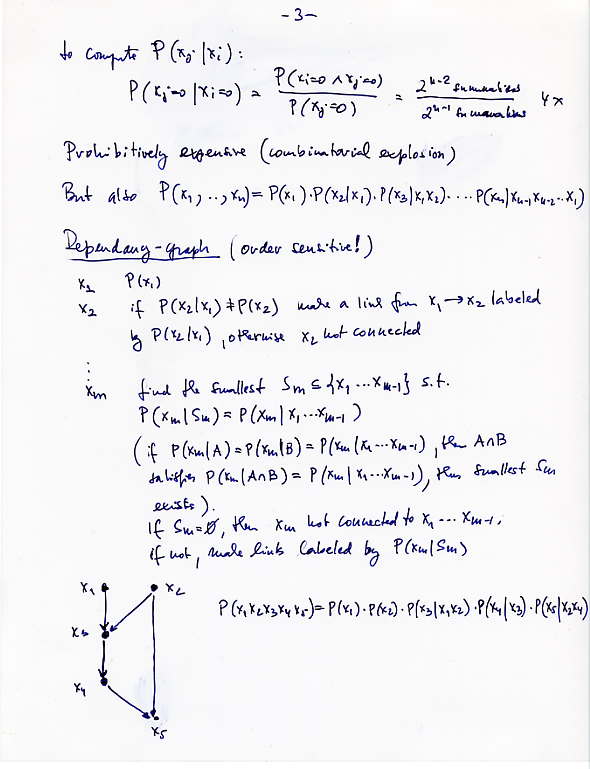 -3-
to compute P(xj | xi):
P(xj=0 | xi=0) = P(xi=0 ∧ xj=0) / P(xj=0) = 2^(n-2) summations / 2^(n-1) summations
Prohibitively expensive (combinatorial explosion)
But also P(x1, .., xn) = P(x1)·P(x2|x1)·P(x3|x1x2)· ... ·P(xn|xn-1xn-2...x1)
Dependency-graph (order sensitive!)
x1 P(x1)
x2 if P(x2|x1) ≠ P(x2) make a link from x1 → x2 labeled
by P(x2|x1), otherwise x2 not connected
⋮
xm find the smallest Sm ⊆ {x1 ... xm-1} s.t.
P(xm|Sm) = P(xm | x1...xm-1)
(if P(xm|A) = P(xm|B) = P(xm|x1...xm-1), then A∩B
satisfies P(xm|A∩B) = P(xm | x1...xm-1), thus smallest Sm
exists).
If Sm=∅, then xm not connected to x1 ... xm-1,
if not, make links labeled by P(xm|Sm)
x1 x2
P(x1x2x3x4x5) = P(x1)·P(x2)·P(x3|x1x2)·P(x4|x3)·P(x5|x2x4)
x3
x4
x5